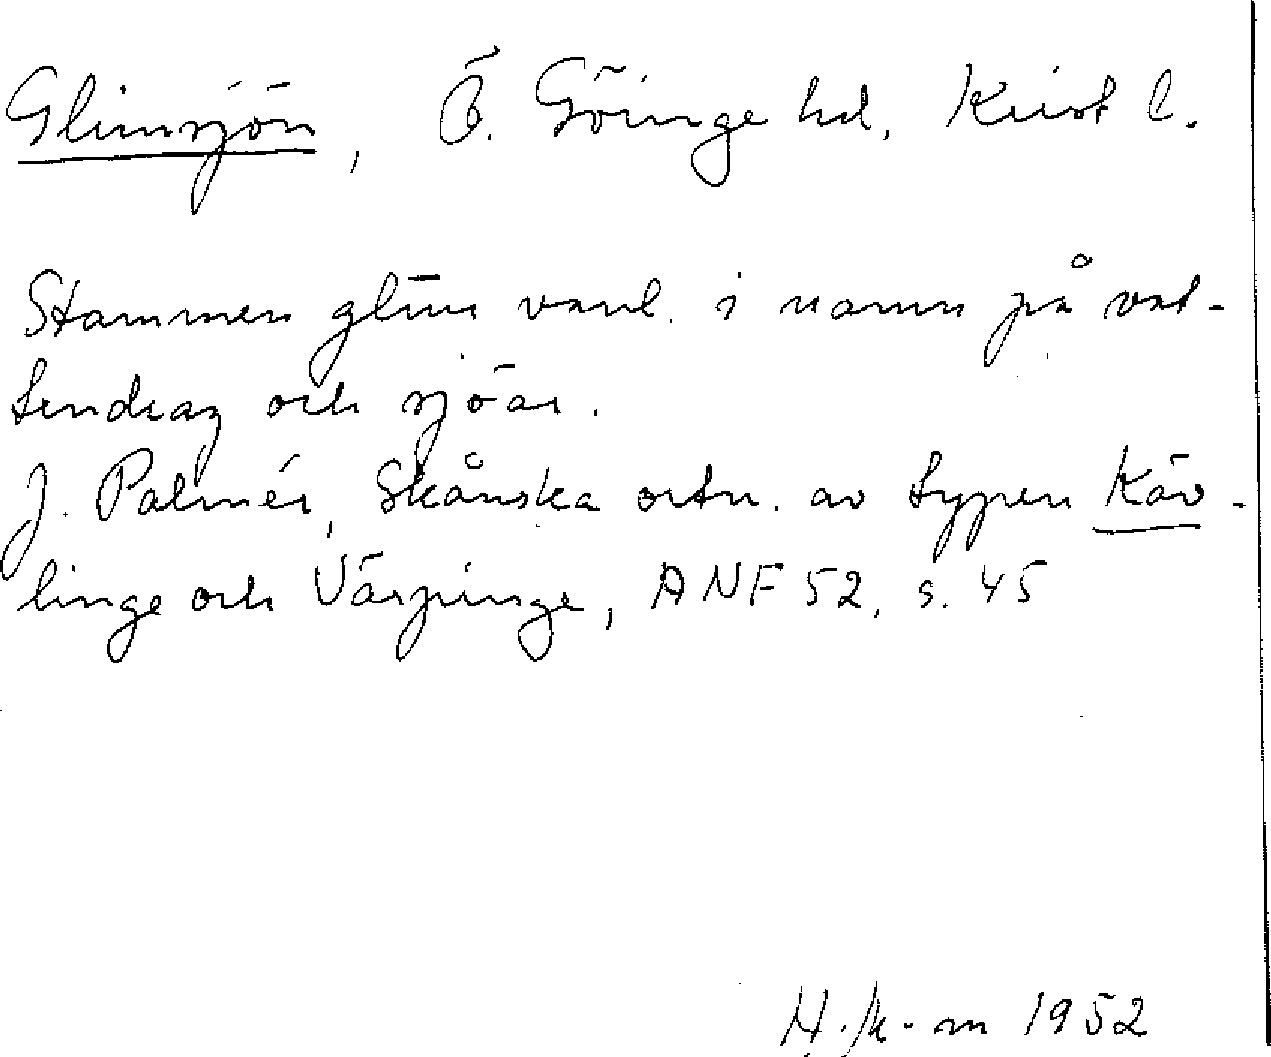 Glimsjön, Ö. Göinge hd. Krist l.
Stammen glīm vanl. i namn på vat-
tendrag och sjöar.
J. Palmér, Skånska ortn. av typen Käv-
linge och Värpinge, ANF 52, s. 45
1952